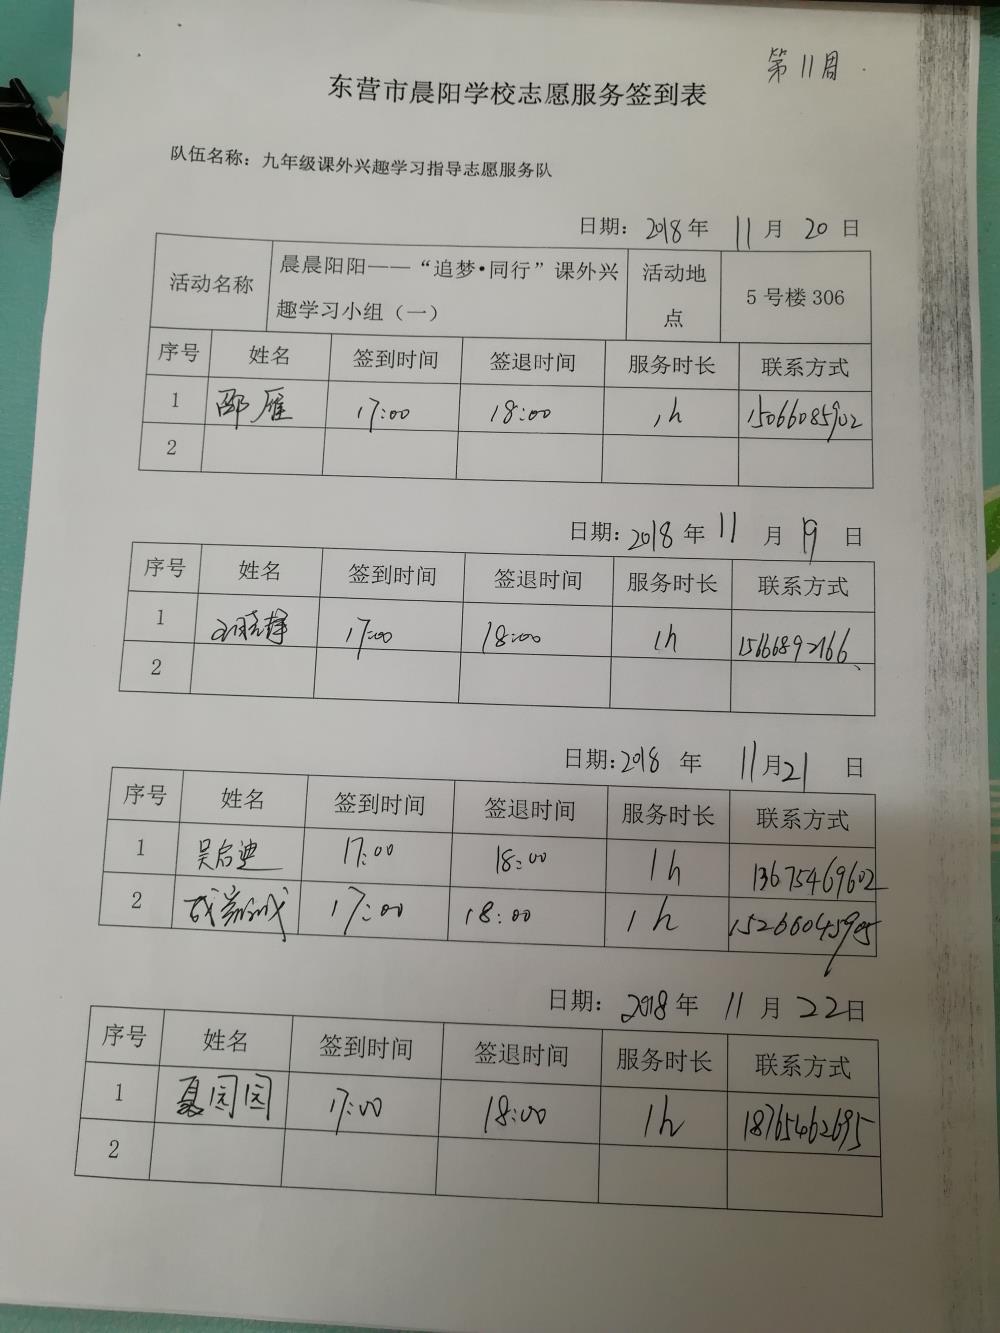 第11周
东营市晨阳学校志愿服务签到表
队伍名称：九年级课外兴趣学习指导志愿服务队
日期：2018年 11月 20日
活动名称 晨晨阳阳——“追梦·同行”课外兴趣学习小组（一） 活动地点 5号楼306
序号 姓名 签到时间 签退时间 服务时长 联系方式
1 邵雁 17:00 18:00 1h 15066085902
2
日期：2018年 11月 19日
序号 姓名 签到时间 签退时间 服务时长 联系方式
1 17:00 18:00 1h 15666892166
2
日期：2018年 11月21日
序号 姓名 签到时间 签退时间 服务时长 联系方式
1 吴启迪 17:00 18:00 1h 13675469602
2 17:00 18:00 1h 15266045905
日期：2018年 11月 22日
序号 姓名 签到时间 签退时间 服务时长 联系方式
1 夏园园 17:00 18:00 1h 18765462695
2